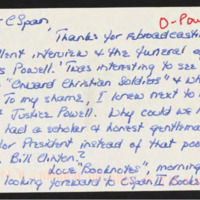 C Span, D-Pow
Thanks for rebroadcasting
llent interview & the funeral of
s Powell. 'Twas interesting to see
"Onward Christian Soldiers" & wh
To my shame, I knew next to
f Justice Powell. Why could we n
had a scholar & honest gentlema
or President instead of that poo
Bill Clinton?
Love "Booknotes", morning
looking forward to CSpan II Books